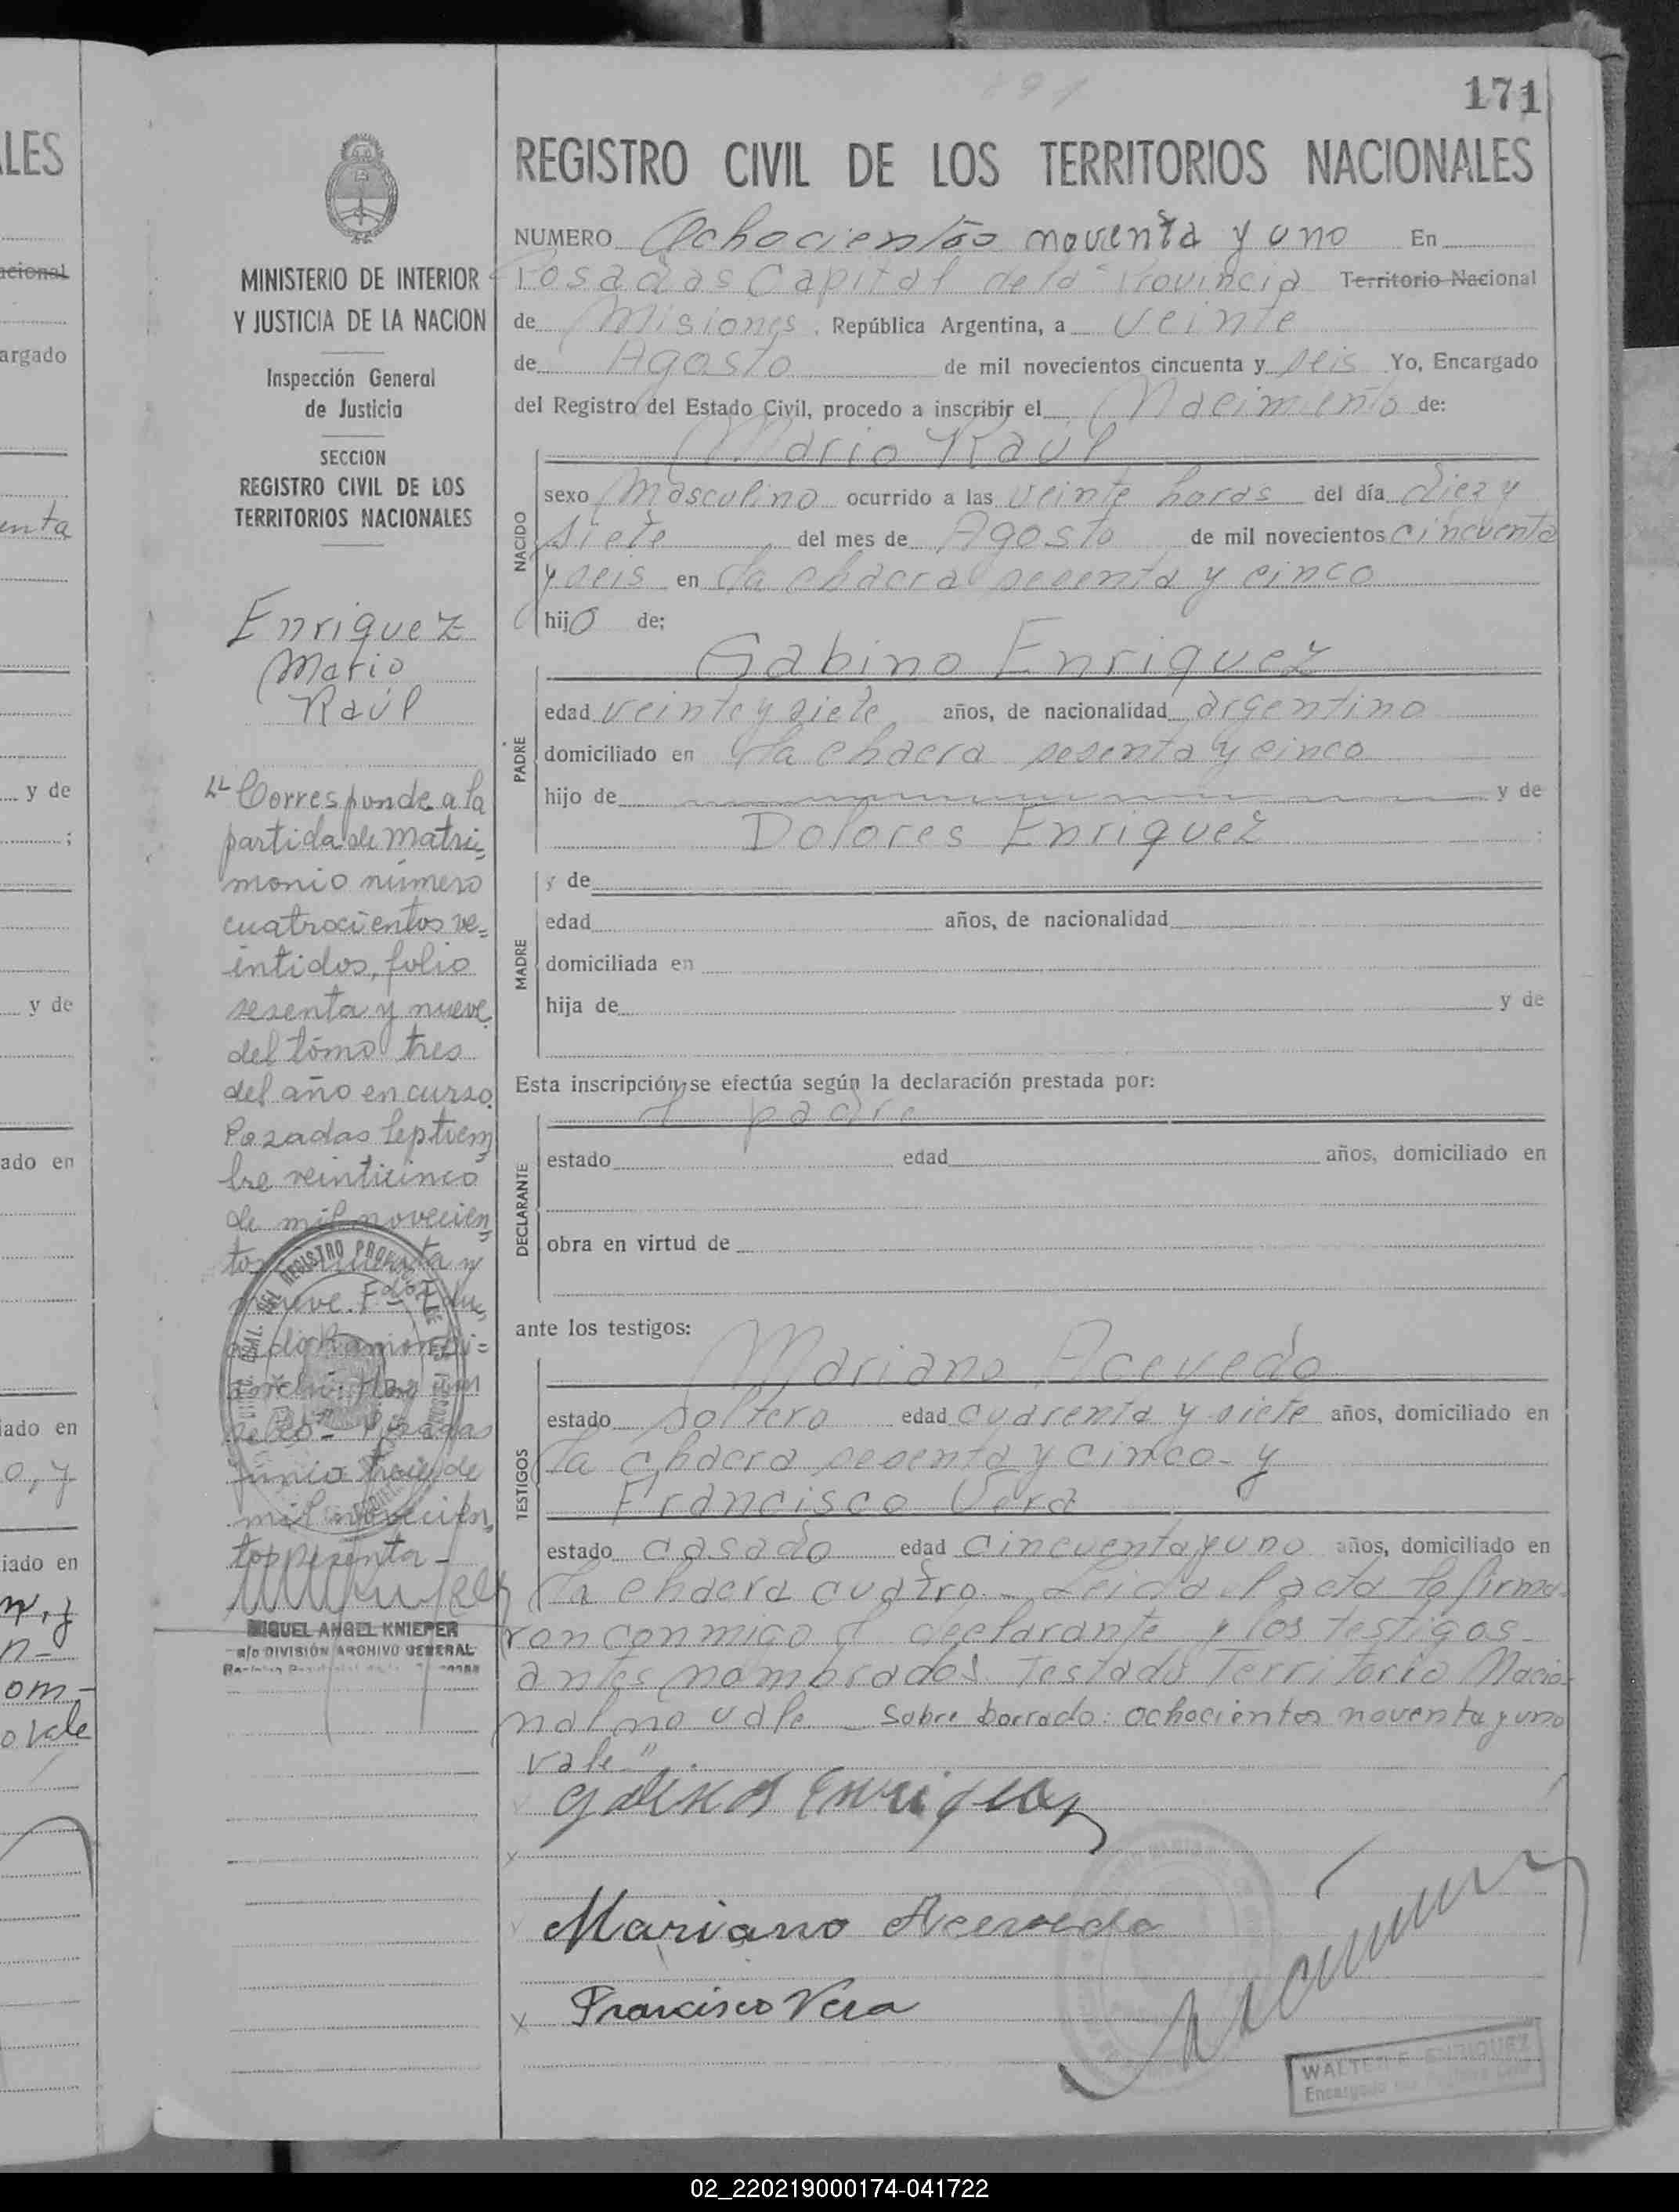 171
REGISTRO CIVIL DE LOS TERRITORIOS NACIONALES
NUMERO Ochocientos noventa y uno En
Posadas Capital de la Provincia Territorio Nacional
de Misiones, República Argentina, a veinte
de Agosto de mil novecientos cincuenta y seis Yo, Encargado
del Registro del Estado Civil, procedo a inscribir el Nacimiento de:
Mario Raúl
NACIDO
sexo Masculino ocurrido a las veinte horas del día diez y
siete del mes de Agosto de mil novecientos cincuenta
y seis en la chacra sesenta y cinco
hijo de:
Gabino Enriquez
PADRE
edad veinte y siete años, de nacionalidad argentino
domiciliado en la chacra sesenta y cinco
hijo de y de
Dolores Enriquez
y de
MADRE
edad años, de nacionalidad
domiciliada en
hija de y de
Esta inscripción se efectúa según la declaración prestada por:
el padre
DECLARANTE
estado edad años, domiciliado en
obra en virtud de
ante los testigos:
Mariano Acevedo
TESTIGOS
estado soltero edad cuarenta y siete años, domiciliado en
la chacra sesenta y cinco - y
Francisco Vera
estado casado edad cincuenta y uno años, domiciliado en
la chacra cuatro - Leida el acta la firma-
ron conmigo el declarante y los testigos
antes nombrados Testado Territorio Nacio-
nal no vale - Sobre borrado: ochocientos noventa y uno
vale"
Enriquez
Mariano Acevedo
Francisco Vera
WALTER E. ENRIQUEZ
Encargado del Registro Civil
MINISTERIO DE INTERIOR
Y JUSTICIA DE LA NACION
Inspección General
de Justicia
SECCION
REGISTRO CIVIL DE LOS
TERRITORIOS NACIONALES
Enriquez
Mario
Raúl
Corresponde a la
partida de matri=
monio número
cuatrocientos ve=
intidos, folio
sesenta y nueve
del tomo tres
del año en curso.
Posadas Septiem
bre veinticinco
de mil novecien
tos cincuenta y
nueve. Fdo: Edu
Posadas
Junio trece de
mil novecien
tos sesenta -
MIGUEL ANGEL KNIEPER
a/c DIVISIÓN ARCHIVO GENERAL
LES
acional
argado
enta
y de
y de
ado en
iado en
o, y
iado en
om-
o vale
02_220219000174-041722